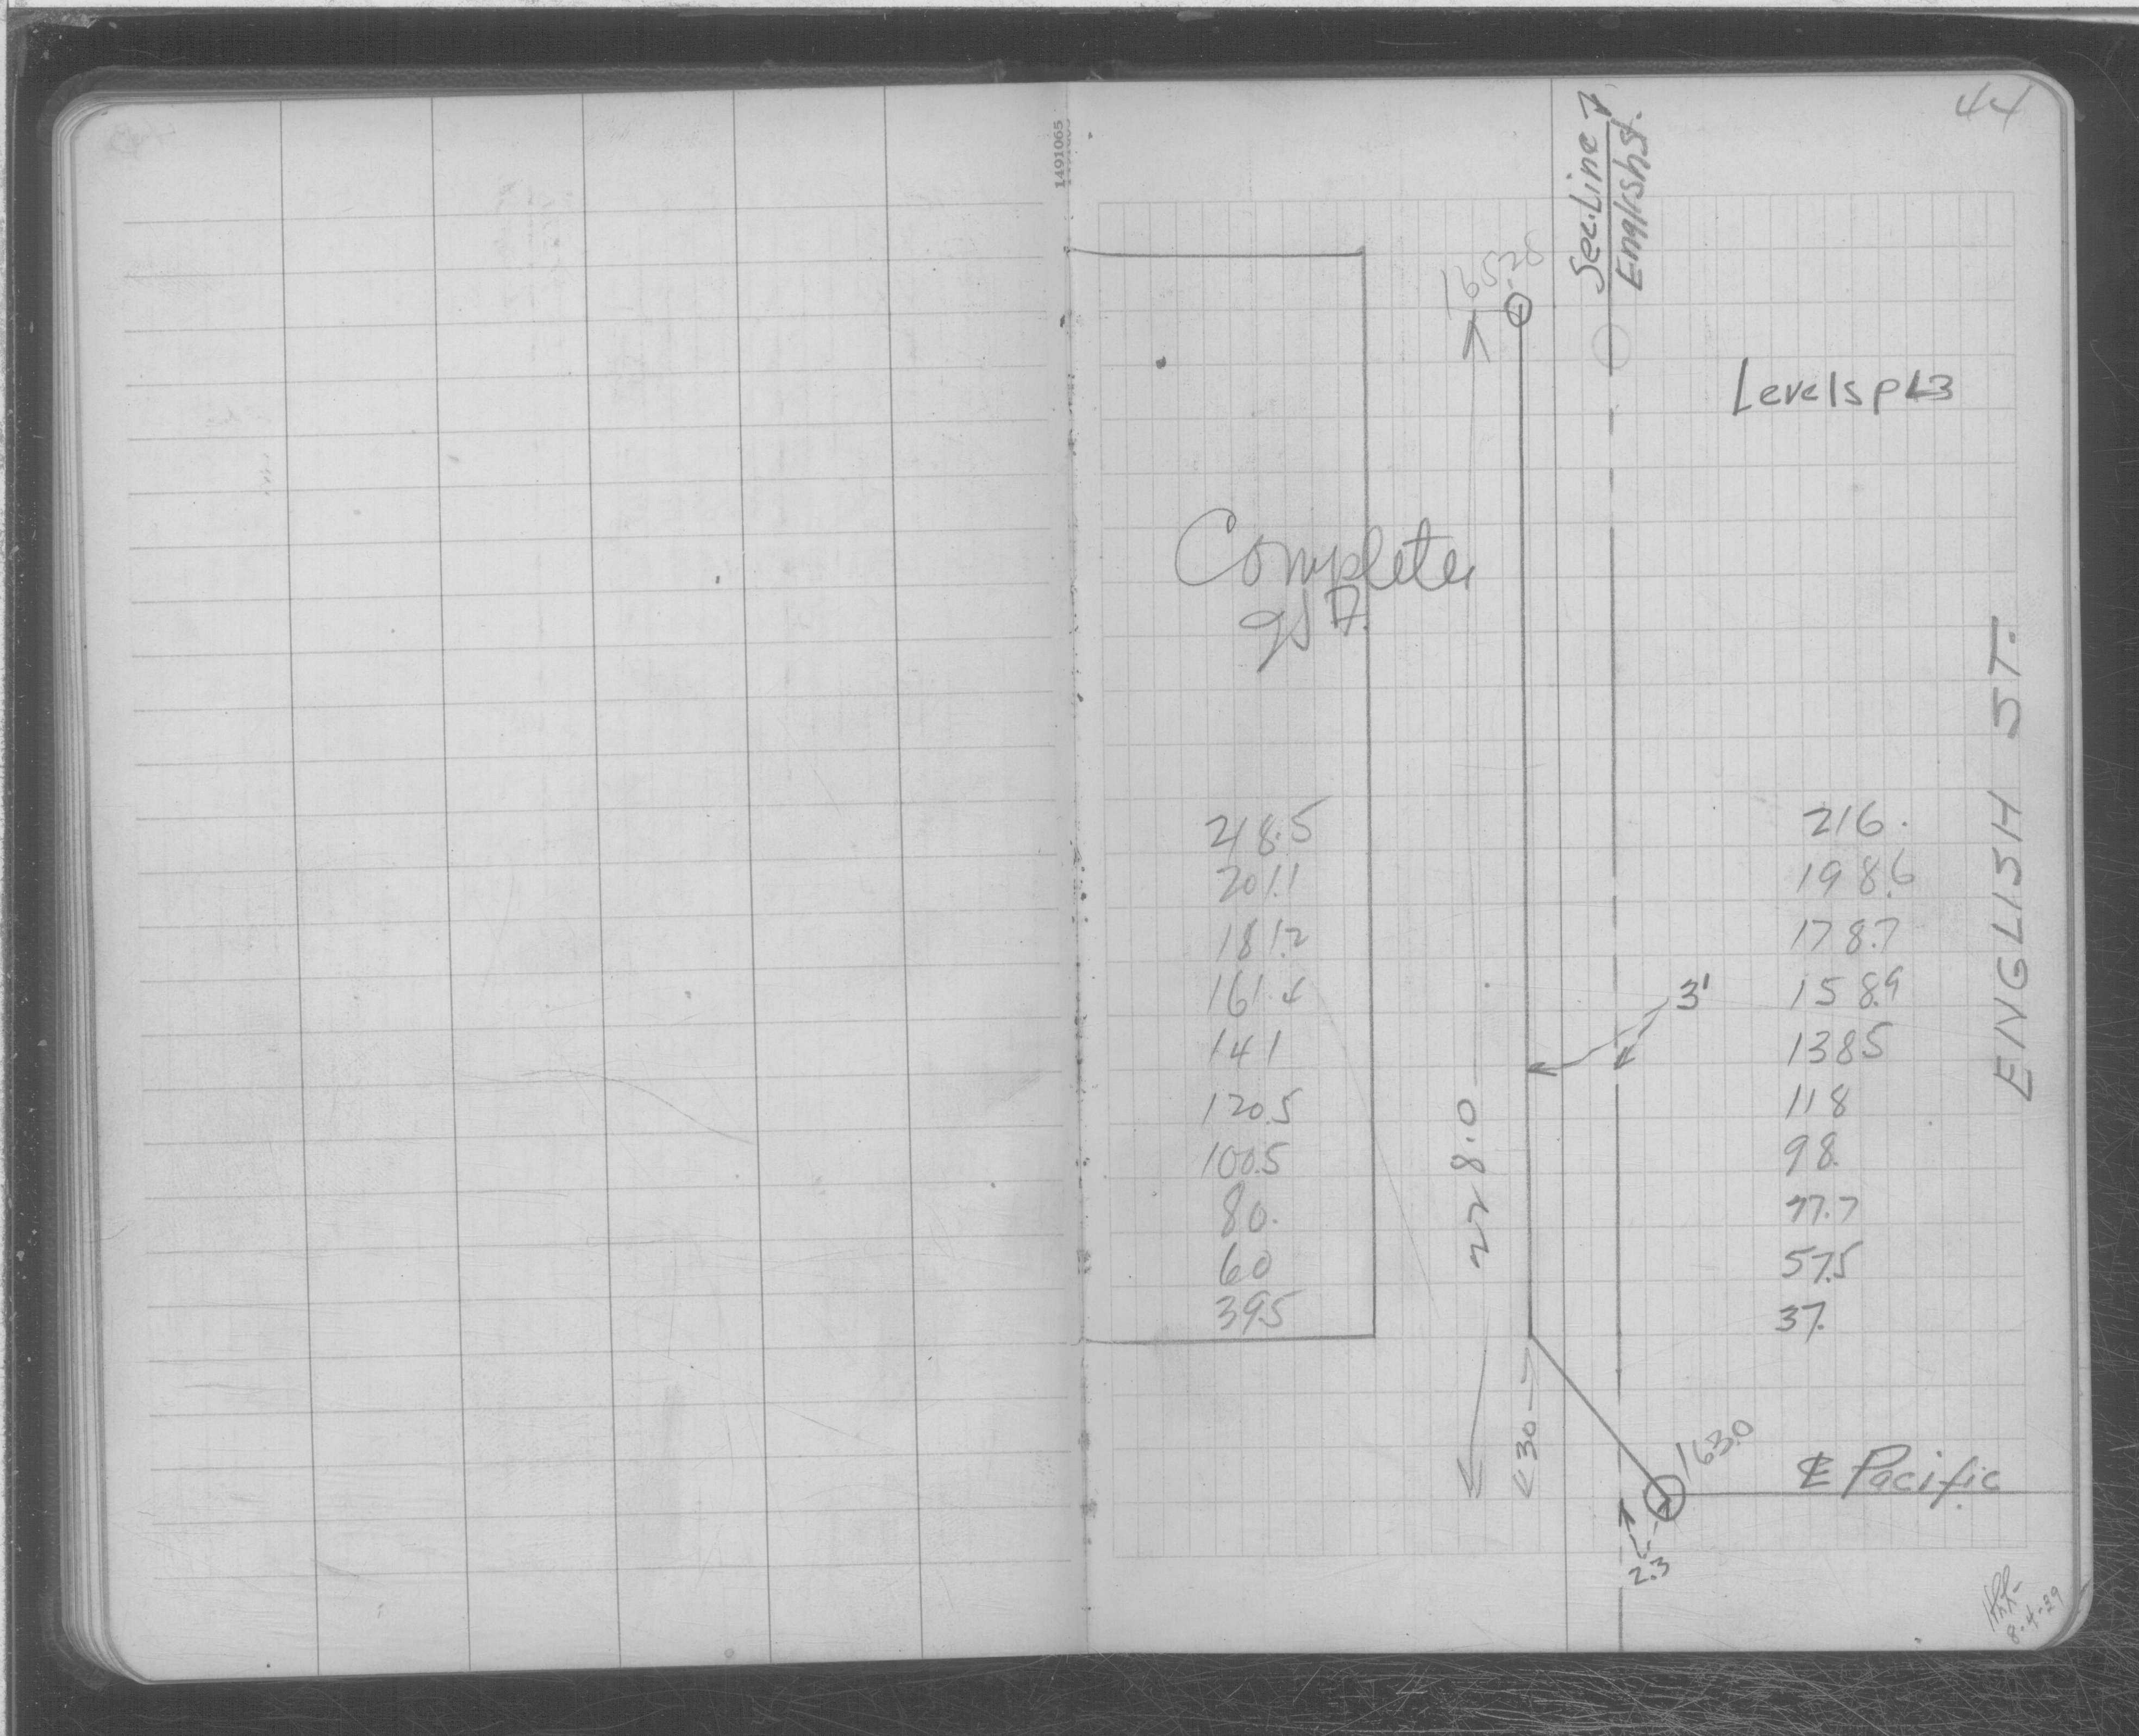 44
1491065
Sec. Line
English St.
165.28
Levels p 43
Complete
218.5 216.
201.1 198.6
181.2 178.7
161.4 158.9
141 138.5
120.5 118
100.5 98.
80. 77.7
60 57.5
39.5 37.
3'
ENGLISH ST.
228.0
30
163.0
℄ Pacific
2.3
8-4-39